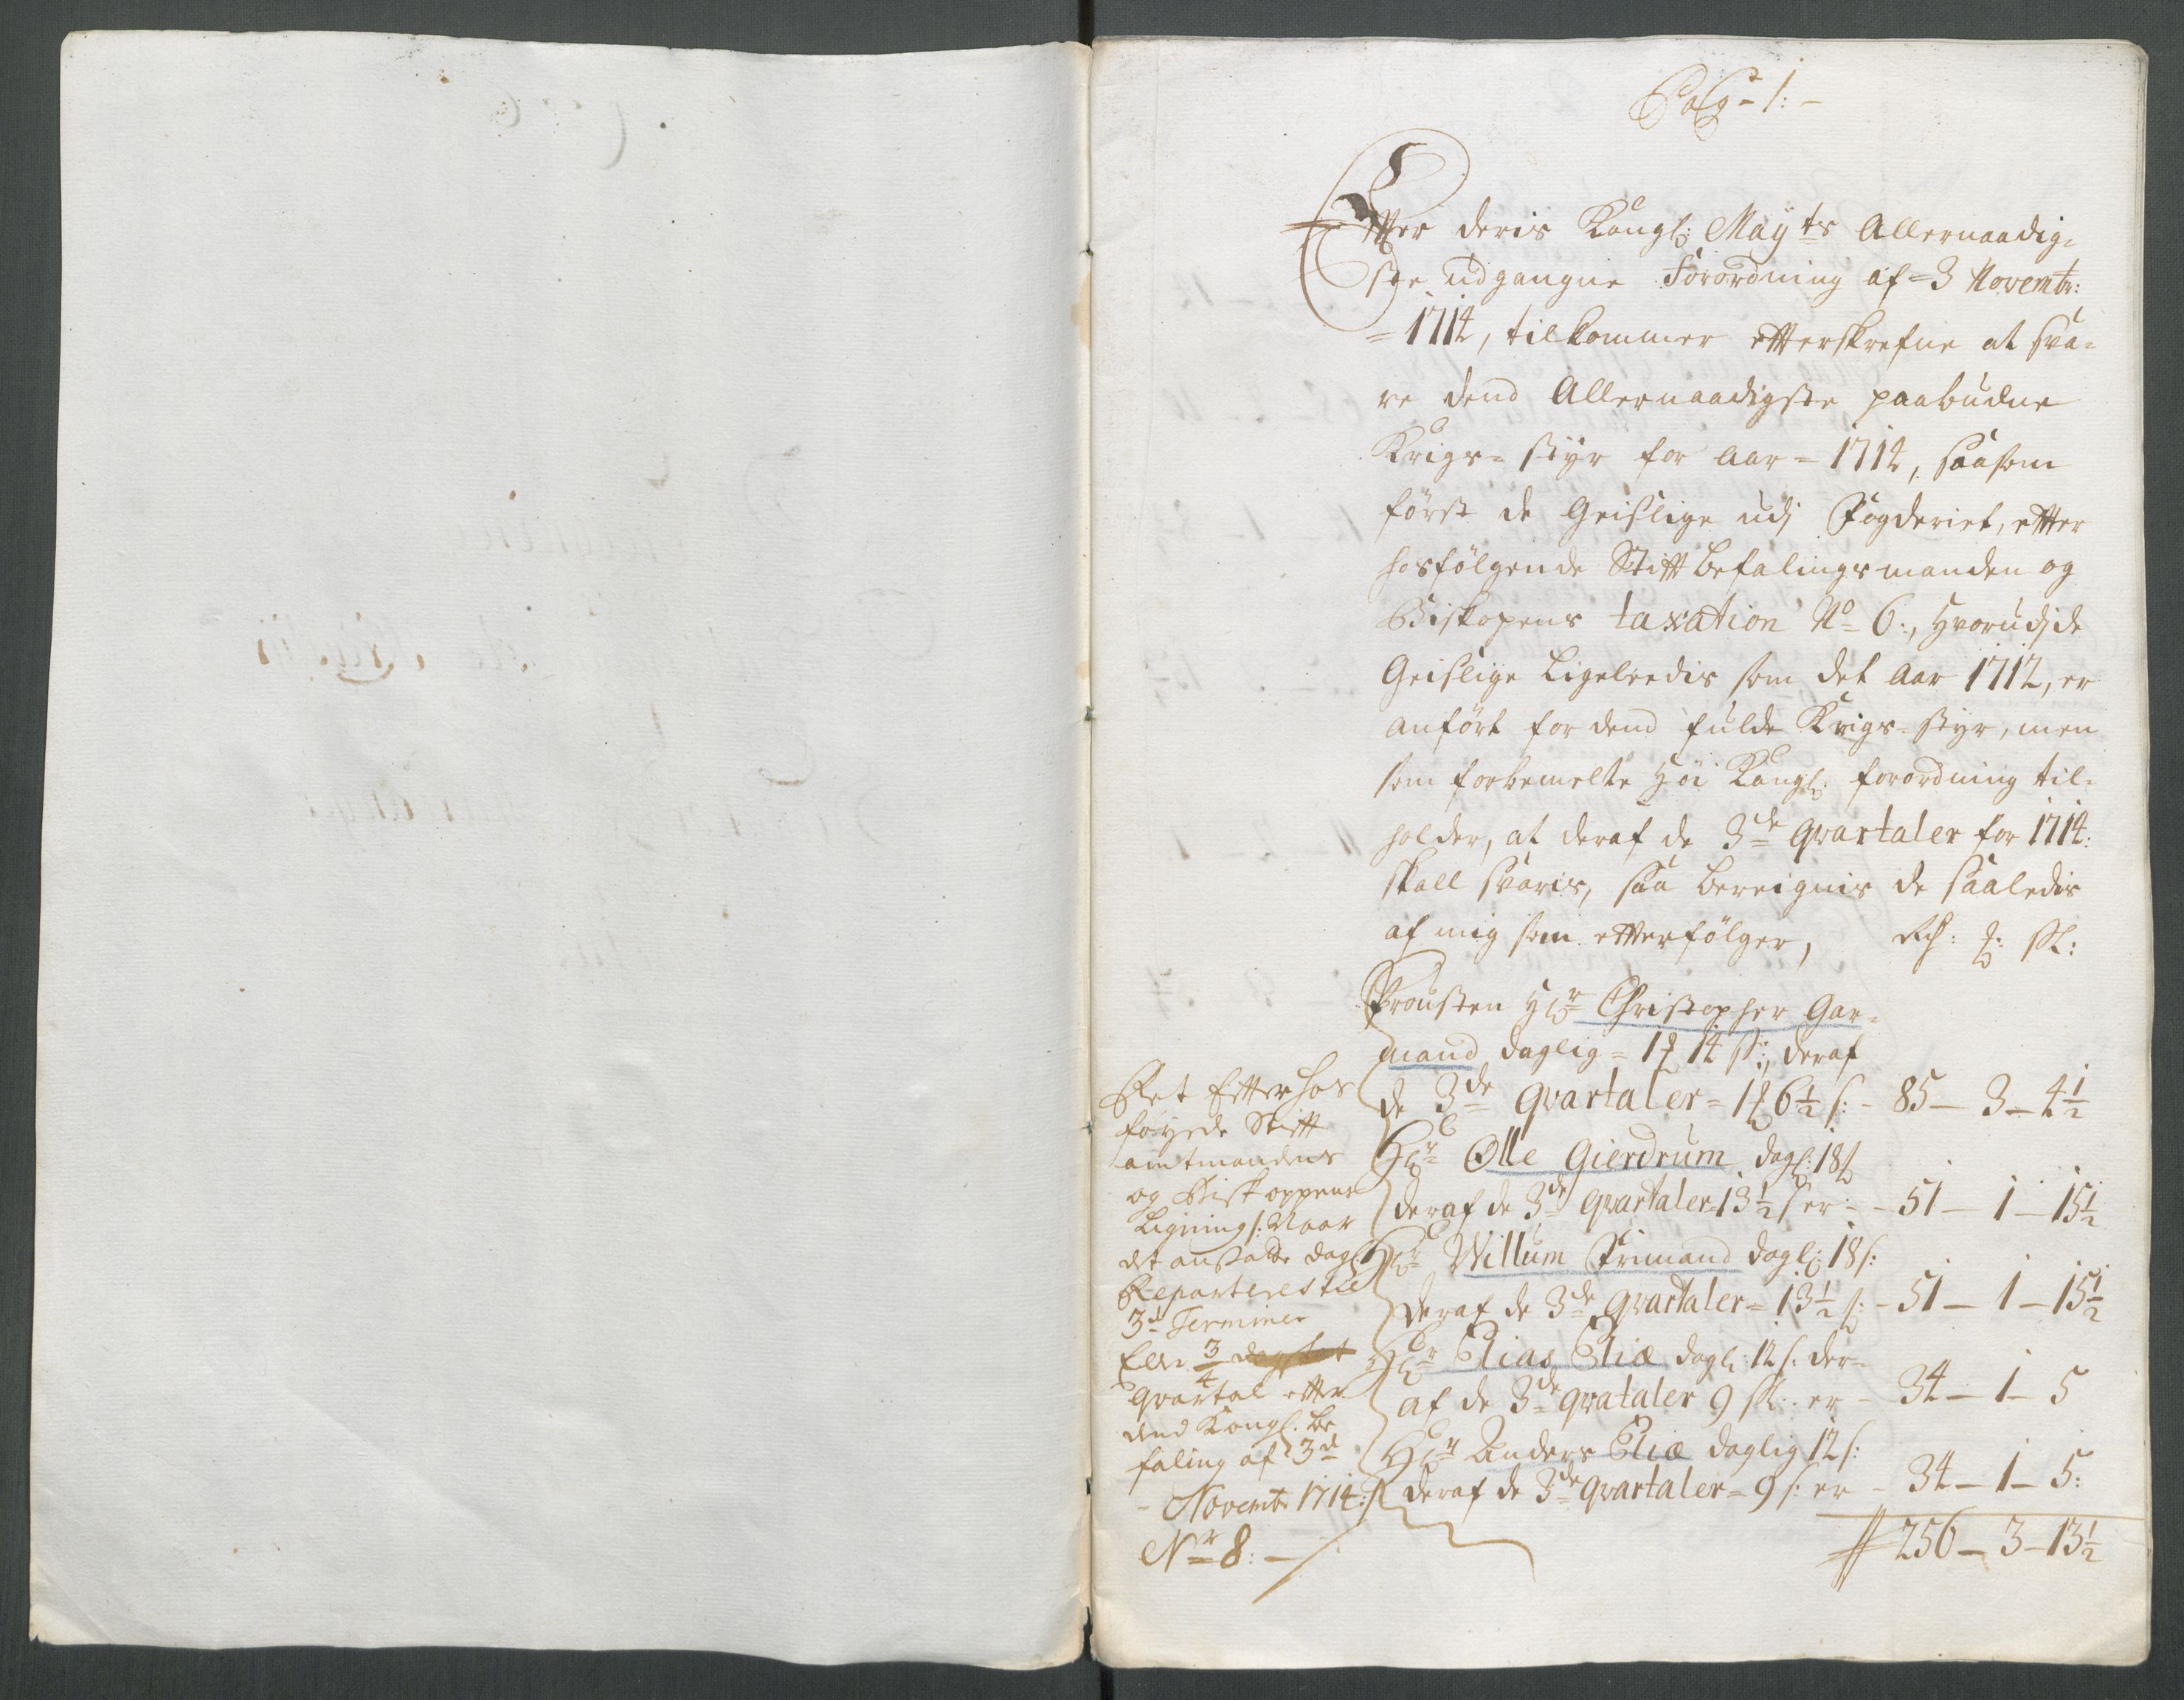 Pag: 1:
Effter deris Kongl: Mayts Allernaadig=
ste udgangne Forordning af 3 Novembr:
1714, tilkommer effterskrefne at sva=
re dend Allernaadigste paabudne
Krigs=styr for Aar 1714, saasom
først de Geistlige udj Fogderiet, effter
hosfølgende Stifft befalingsmanden og
Biskopens taxation No 6:, hvorudj de
Geistlige ligeleedis som det Aar 1712, er
anført for dend fulde Krigs=styr, men
som forbemelte høi Kongl: forordning til=
holder, at deraf de 3de qvartaler for 1714:
skall svaris, saa bereignis de saaledis
af mig som effterfølger, Rd: : s:
Prousten Hr Christopher Gar=
mand daglig 1 14 s:, deraf
de 3de qvartaler = 1 6½ s: - 85 - 3 - 4½
Hr Olle Gierdrum dagl: 18 s
deraf de 3de qvartaler 13½ s er - 51 - 1 - 15½
Hr Willum Frimand dagl: 18 s:
deraf de 3de qvartaler = 13½ s: - 51 - 1 - 15½
Hr Elias Eliæ dagl: 12 s: der=
af de 3de qvataler 9 s: er - 34 - 1 - 5
Hr Anders Eliæ daglig 12 s:
deraf de 3de qvartaler = 9 s: er - 34 - 1 - 5:
256 - 3 - 13½
Ret Effter hos
føyede Stifft
amtmandens
og Biskoppens
Ligning /: Naar
det ansatte dagl
Reparteres til
3de Terminer
Eller 3/4
qvartal effter
dend Kongl: be
faling af 3de
Novembr 1714:/
Nr 8: